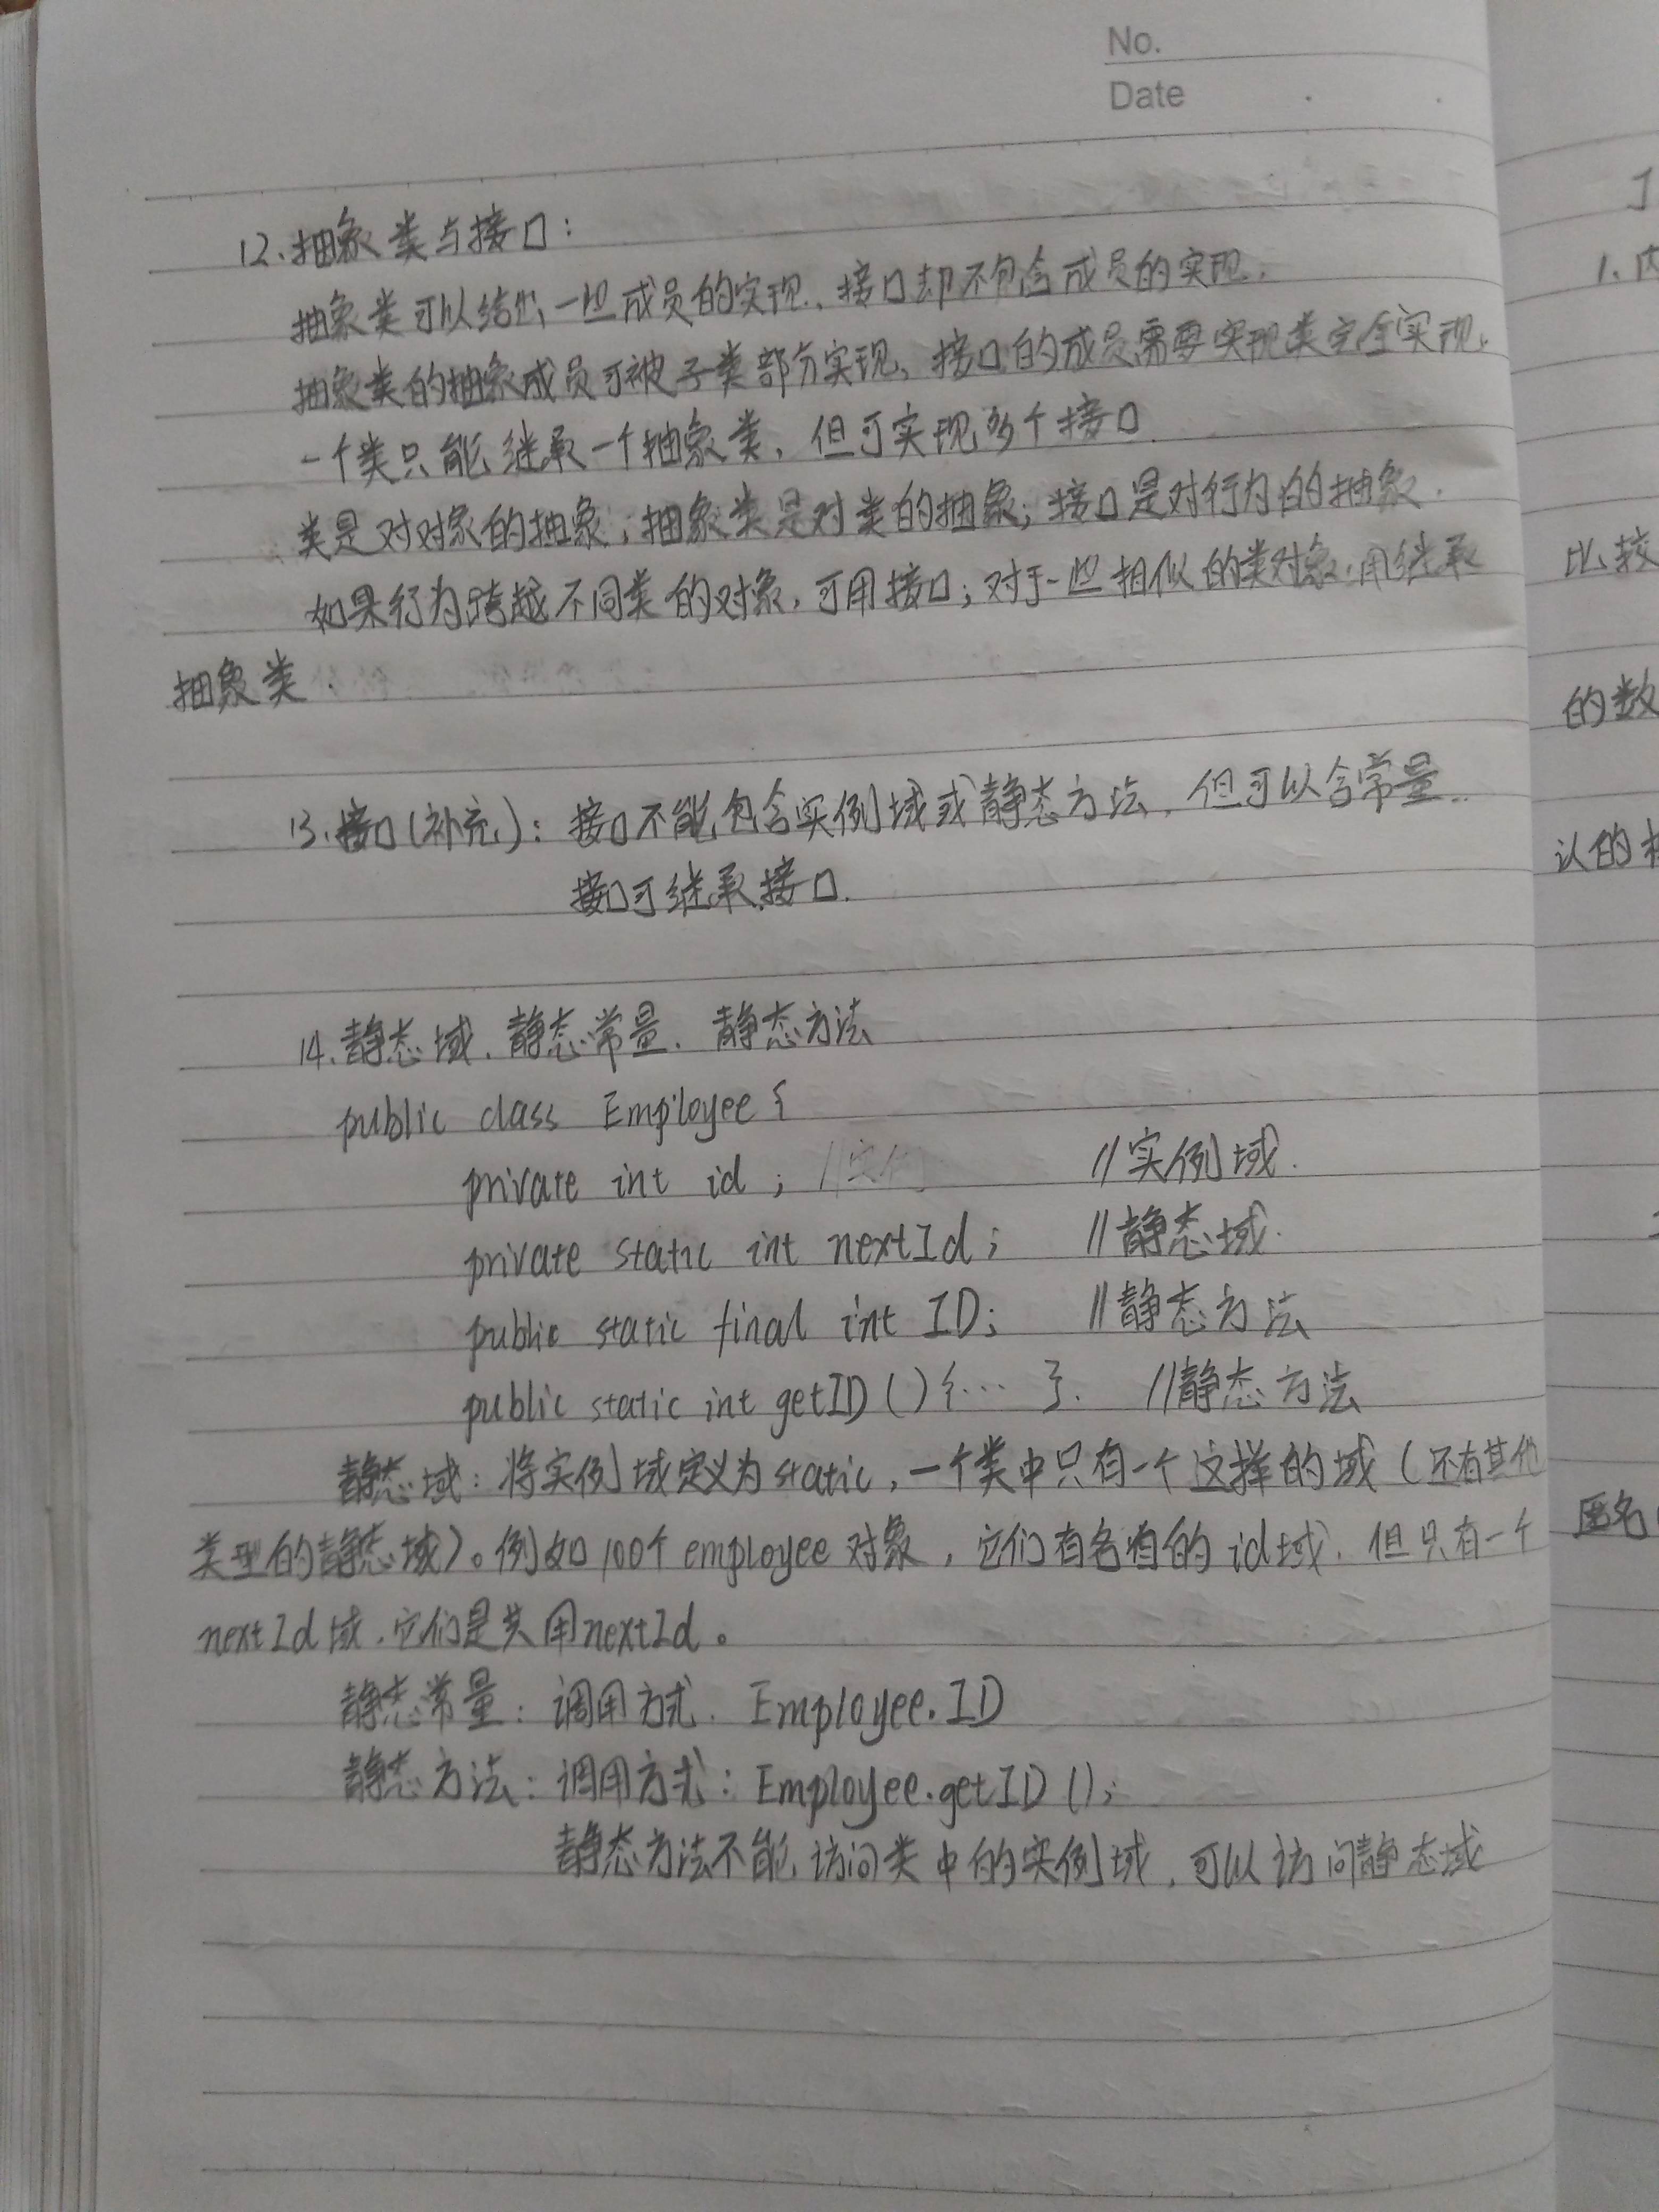 No.
Date
12.抽象类与接口：
抽象类可以给出一些成员的实现、接口却不包含成员的实现.
抽象类的抽象成员可被子类部分实现、接口的成员需要实现类完全实现.
一个类只能继承一个抽象类，但可实现多个接口.
类是对对象的抽象；抽象类是对类的抽象；接口是对行为的抽象.
如果行为跨越不同类的对象，可用接口；对于一些相似的类对象.用继承
抽象类.
13.接口(补充)：接口不能包含实例域或静态方法，但可以含常量..
接口可继承接口.
14.静态域、静态常量、静态方法
public class Employee {
private int id ; //实例 //实例域.
private static int nextId; //静态域.
public static final int ID; //静态方法
public static int getID(){...}. //静态方法
静态域：将实例域定义为static，一个类中只有一个这样的域（还有其他
类型的静态域）。例如100个employee对象，它们有各自的id域.但只有一个
nextId域.它们是共用nextId。
静态常量：调用方式. Employee.ID
静态方法：调用方式：Employee.getID();
静态方法不能访问类中的实例域，可以访问静态域
1.内
比较
的数
认的
匿名